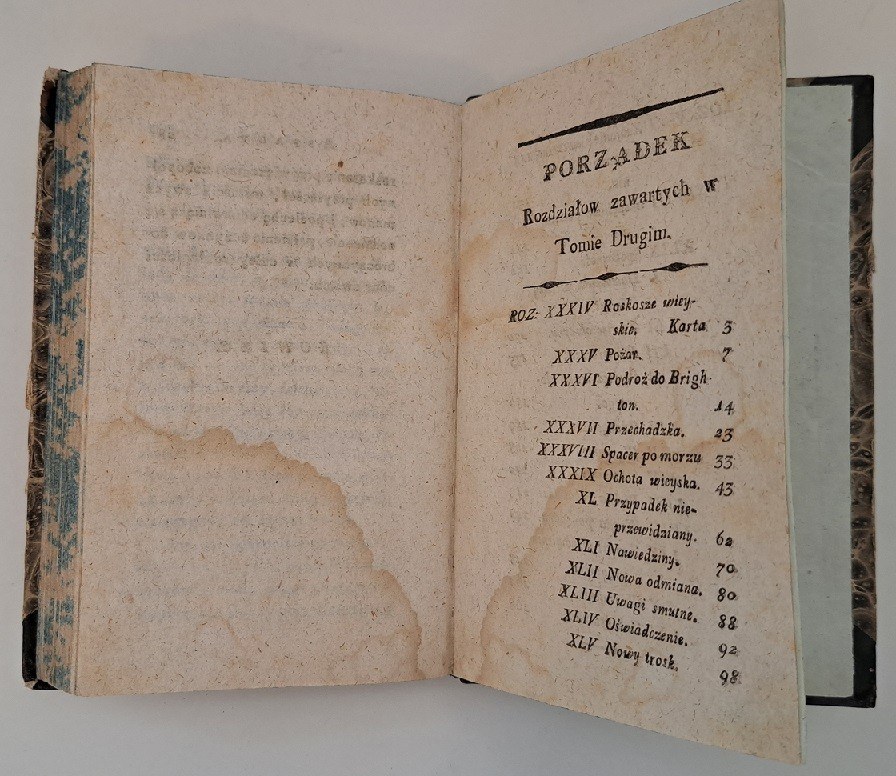 PORZĄDEK
Rozdziałow zawartych w
Tomie Drugim.
ROZ: XXXIV Roskosze wiey-
skie. Karta 3
XXXV Pożar. 7
XXXVI Podroż do Brigh-
ton. 14
XXXVII Przechadzka. 23
XXXVIII Spacer po morzu 33
XXXIX Ochota wieyska. 43
XL Przypadek nie-
przewidziany. 62
XLI Nawiedziny. 70
XLII Nowa odmiana. 80
XLIII Uwagi smutne. 88
XLIV Oświadczenie. 92
XLV Nowy trosk. 98